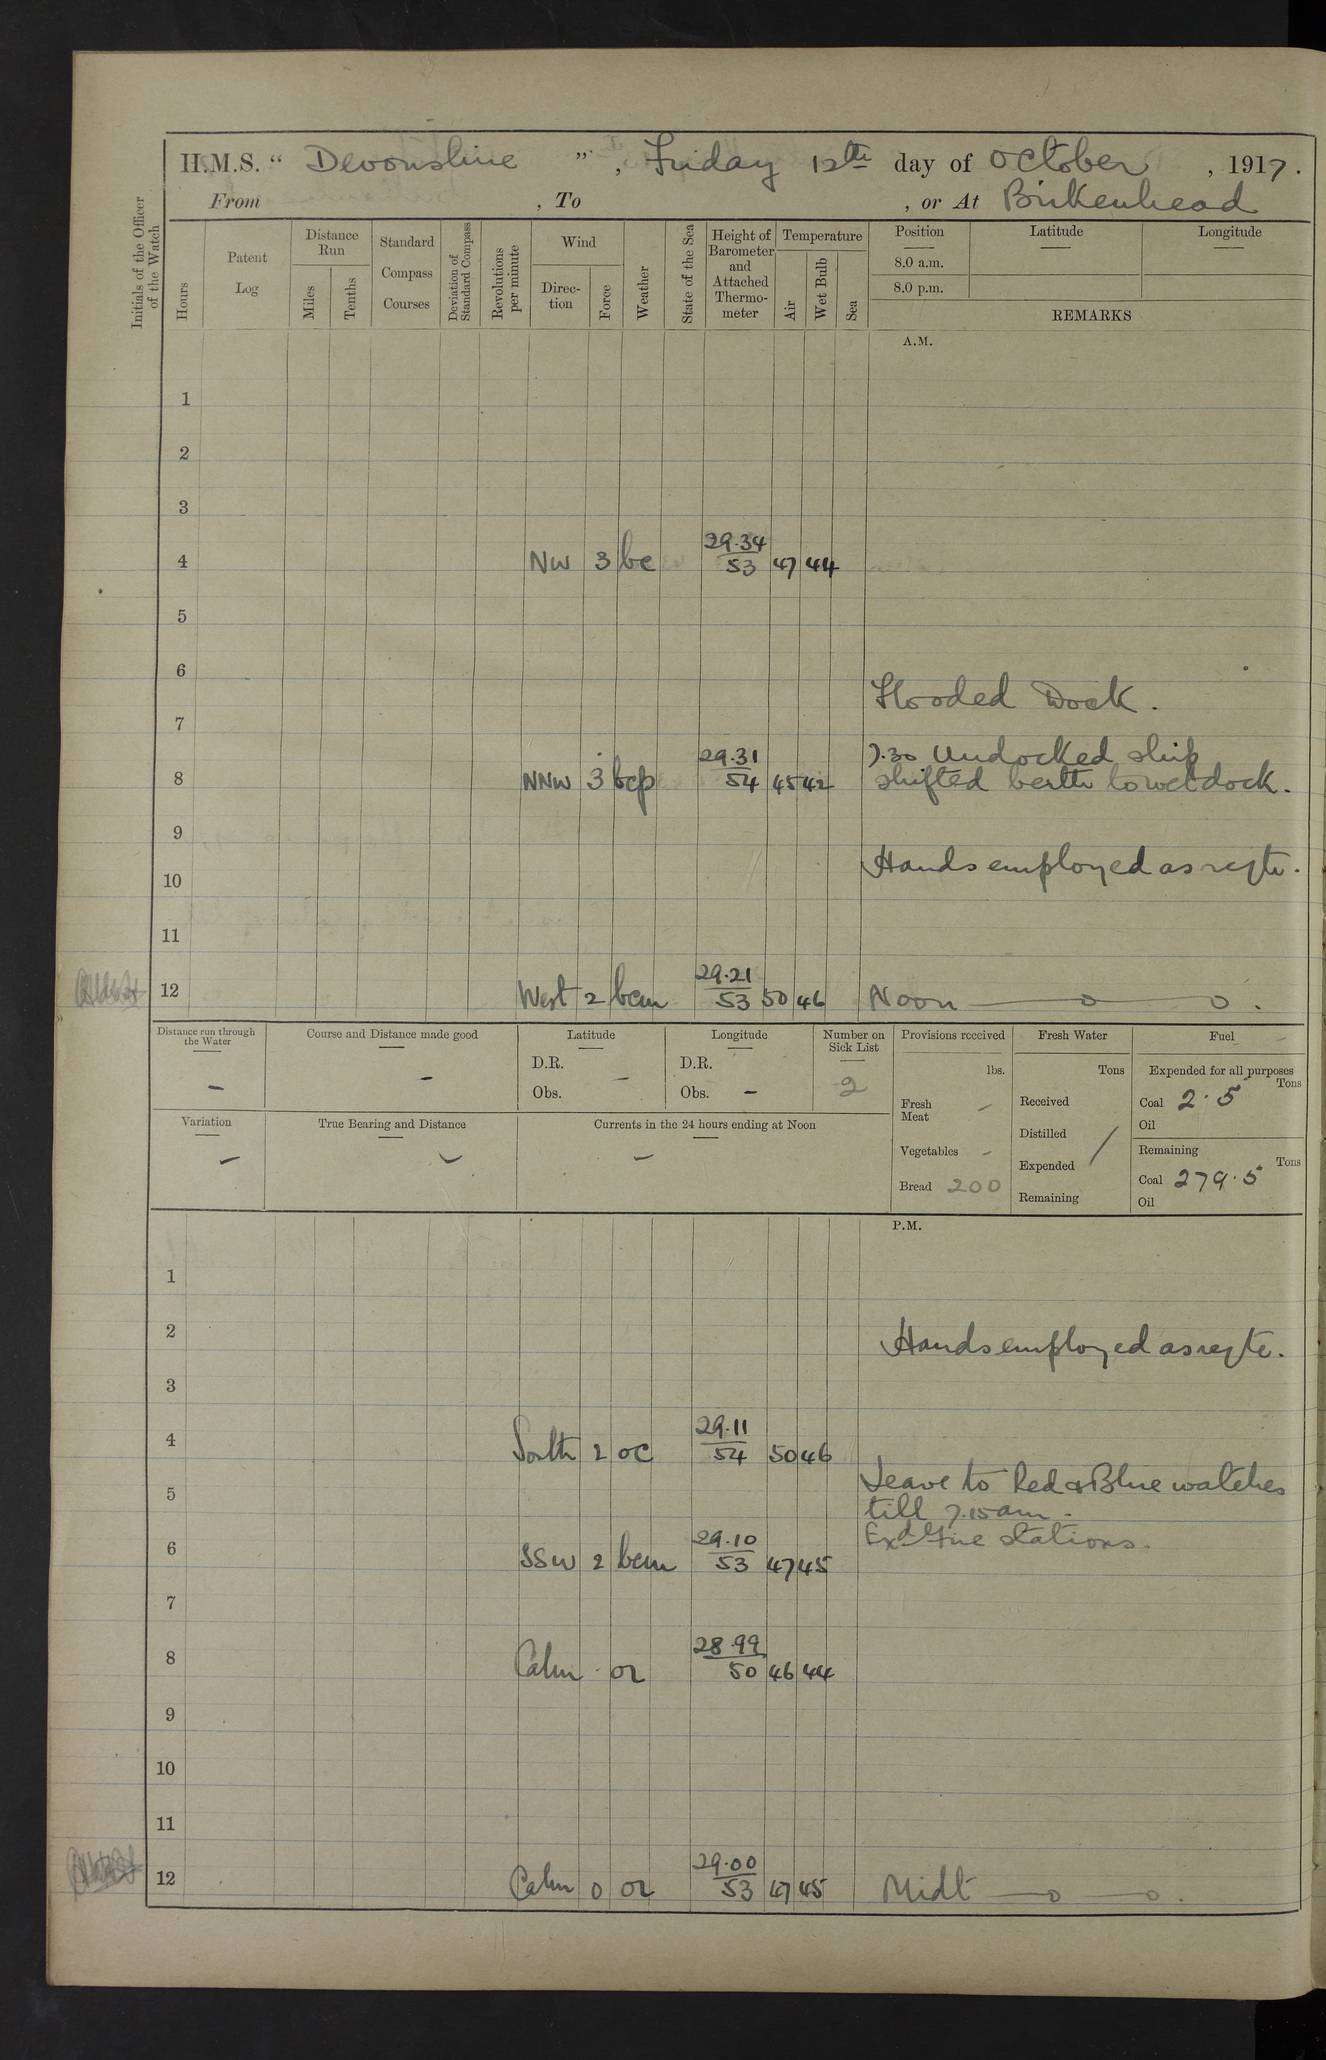 H.M.S. “ Devonshire ”, Friday 12th day of October, 1917.
From , To , or At Birkenhead
Initials of the Officer of the Watch
Hours
Patent Log
Distance Run
Miles
Tenths
Standard Compass Courses
Deviation of Standard Compass
Revolutions per minute
Wind
Direction
Force
Weather
State of the Sea
Height of Barometer and Attached Thermometer
Temperature
Air
Wet Bulb
Sea
Position
Latitude
Longitude
8.0 a.m.
8.0 p.m.
REMARKS
A.M.
1
2
3
4 NW 3 bc 29.34/53 47 44
5
6
Flooded Dock.
7
7.30 Undocked ship
8 NNW 3 bcp 29.31/54 45 42 shifted berth to wet dock.
9
Hands employed as reqte.
10
11
12 West 2 bcm 29.21/53 50 46 Noon —o—o.
Distance run through the Water
–
Course and Distance made good
–
Latitude
D.R.
Obs.
–
Longitude
D.R.
Obs. –
Number on Sick List
2
Provisions received
lbs.
Fresh Meat –
Vegetables –
Bread 200
Fresh Water
Tons
Received
Distilled
Expended
Remaining
/
Fuel
Expended for all purposes
Tons
Coal 2.5
Oil
Remaining
Tons
Coal 279.5
Oil
Variation
–
True Bearing and Distance
–
Currents in the 24 hours ending at Noon
–
P.M.
1
2
Hands employed as reqte.
3
4 South 2 oc 29.11/54 50 46
Leave to Red & Blue watches
5
till 7.15 am.
Exd Fire stations.
6 SSW 2 bcm 29.10/53 47 45
7
8 Calm - or 28.99/50 46 44
9
10
11
12 Calm 0 or 29.00/53 47 45 Midt —o—o.